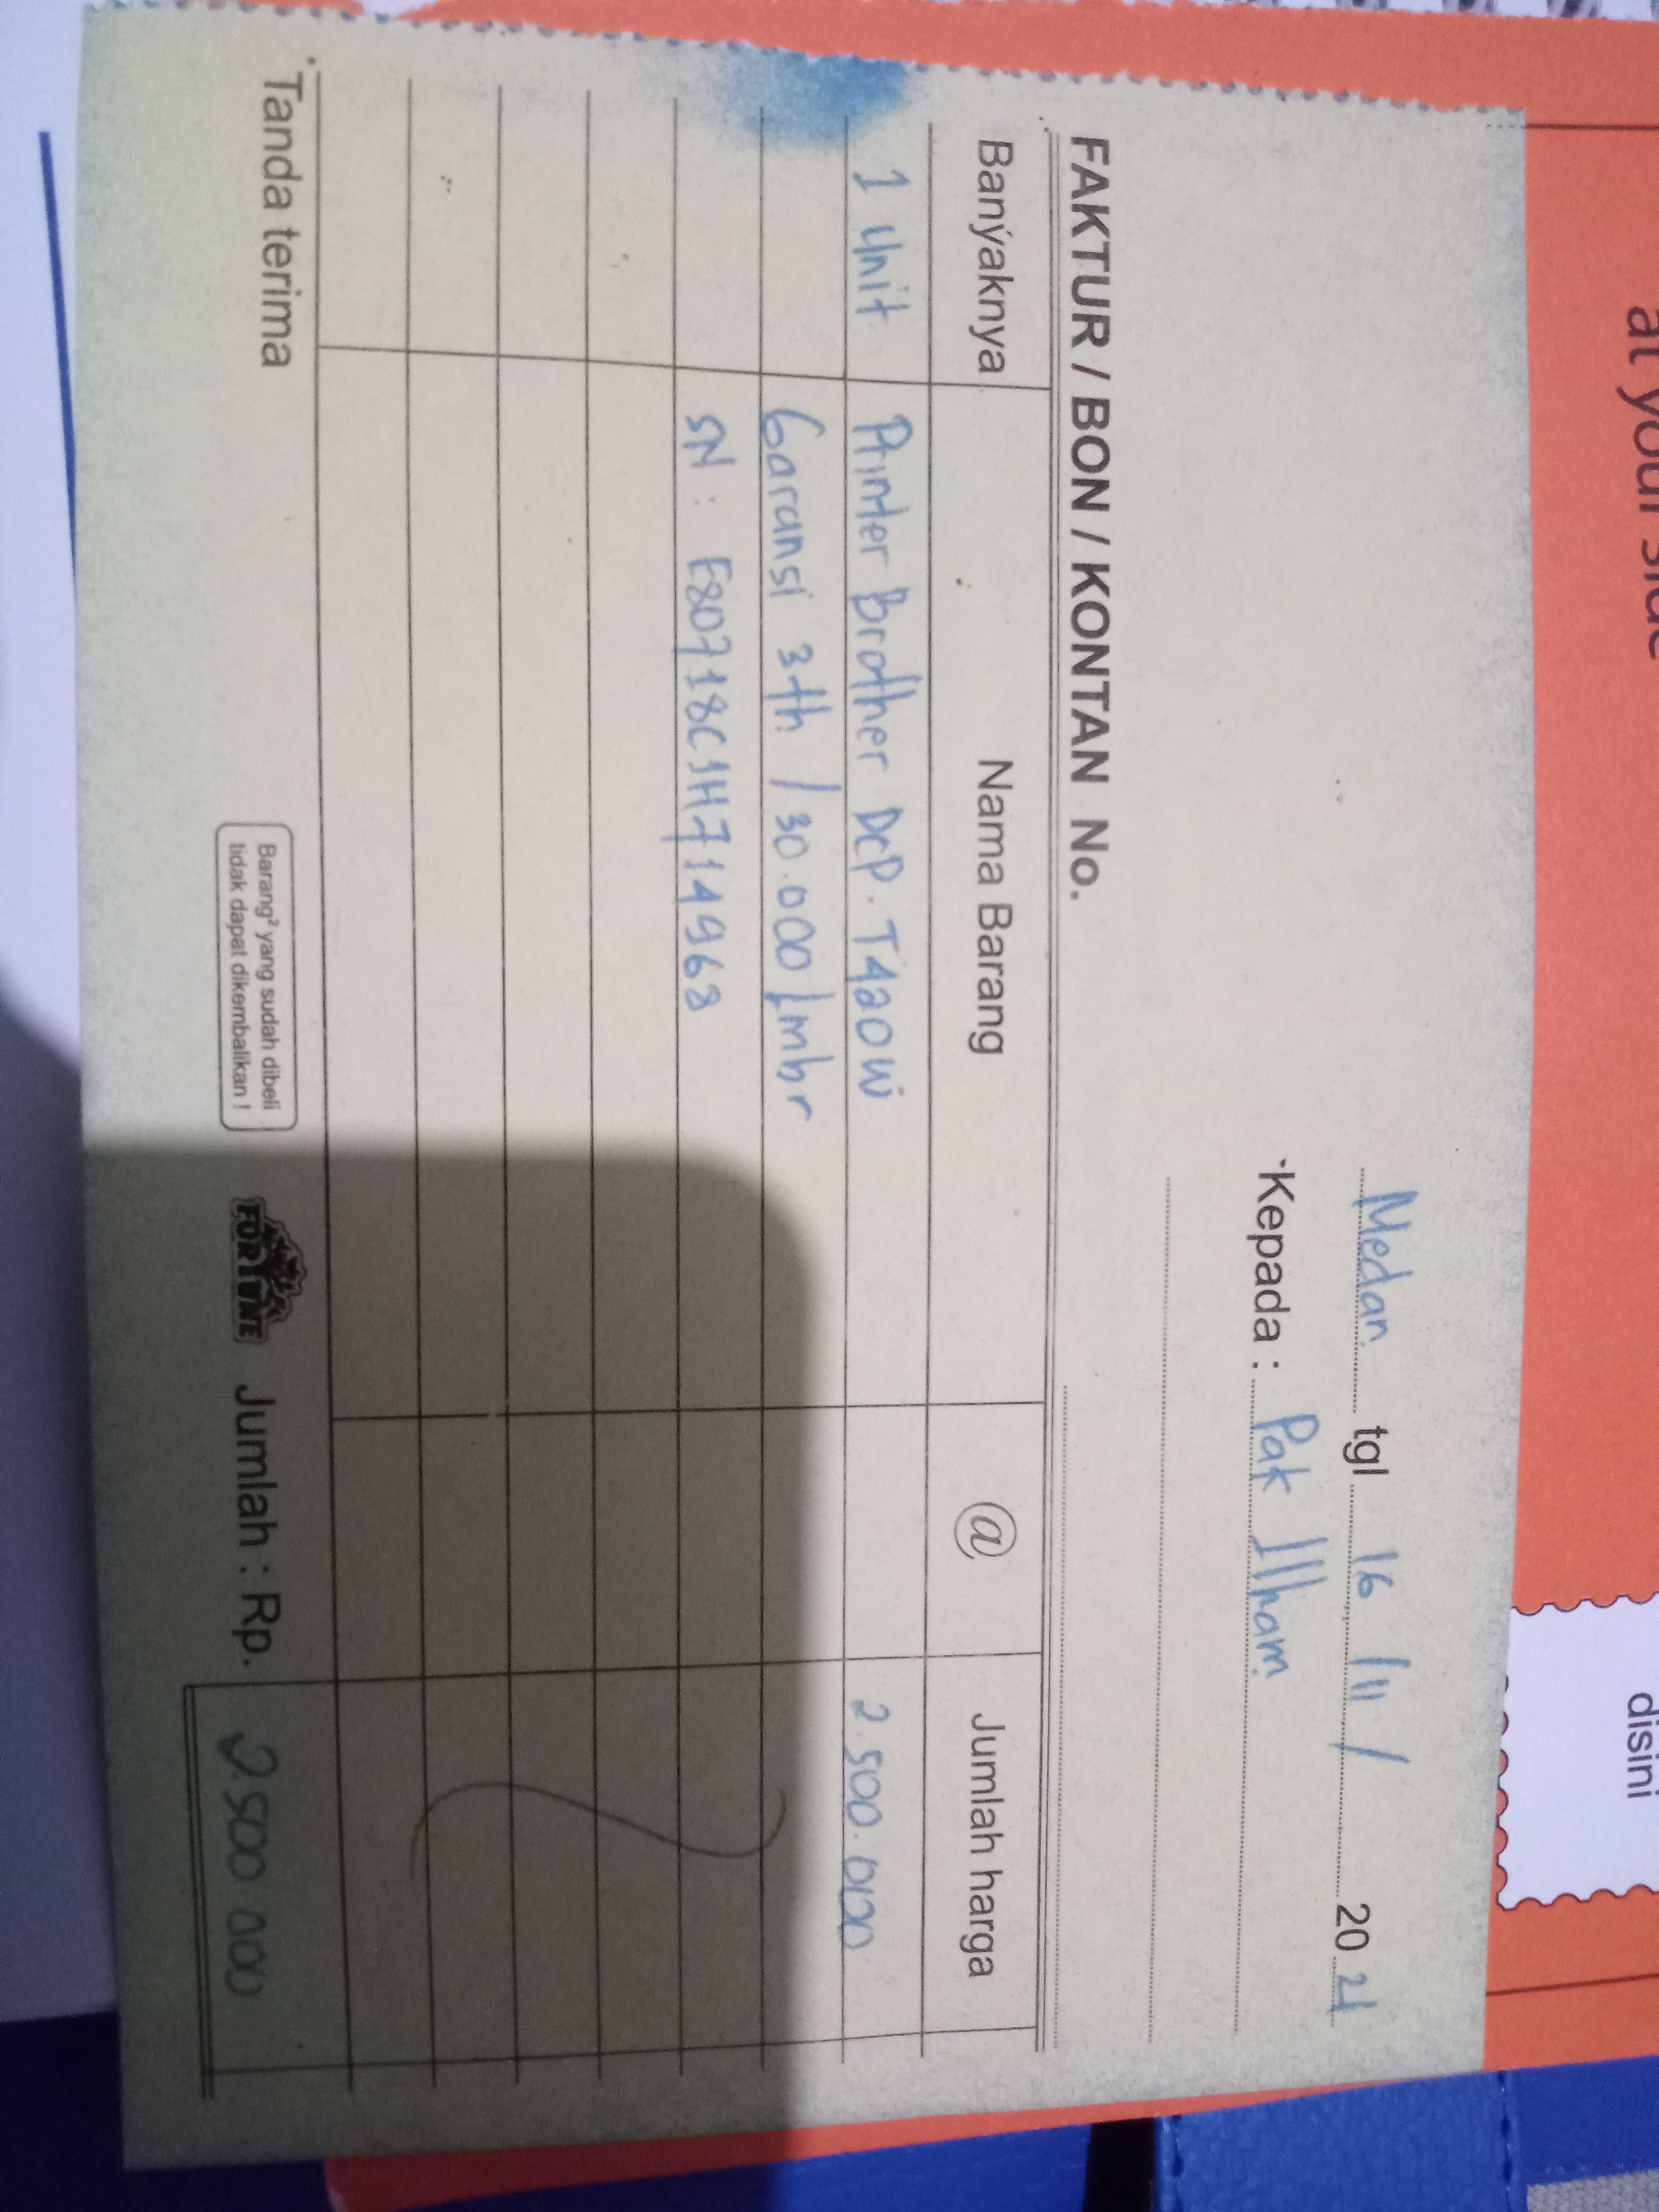 at your side
disini
Medan tgl 16 / 11 / 20 21
Kepada : Pak Ilham
FAKTUR / BON / KONTAN No.
Banyaknya Nama Barang @ Jumlah harga
1 Unit Printer Brother DCP. T420W 2.500.000
Garansi 3th / 30.000 Lmbr
SN : E80718C1H714968
Tanda terima
Barang² yang sudah dibeli
tidak dapat dikembalikan !
FORTUNE
Jumlah : Rp. 2.500.000